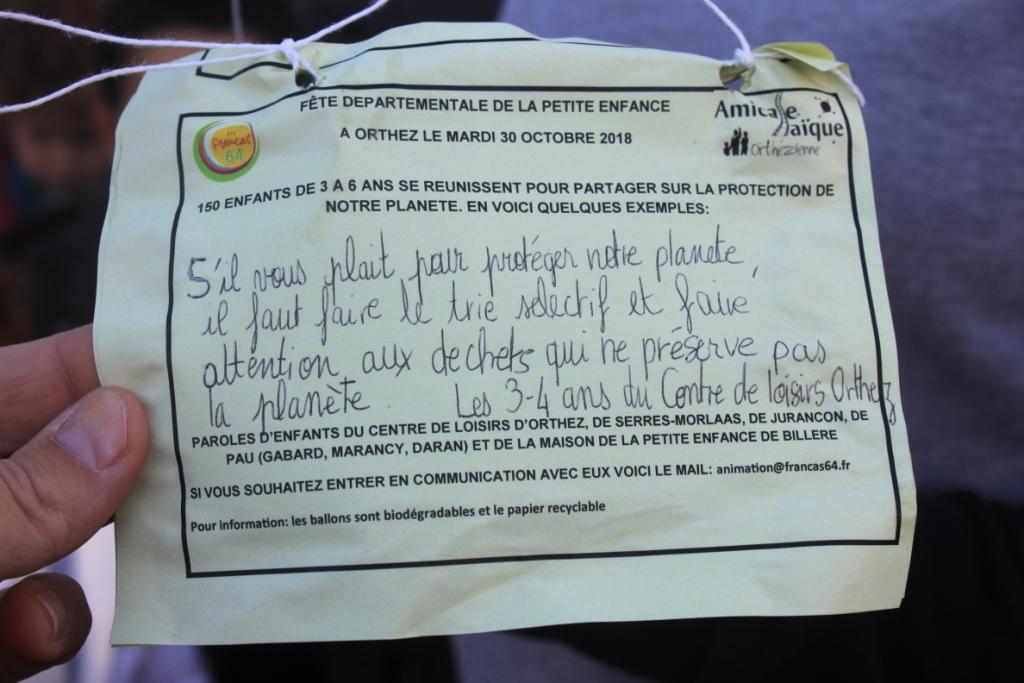 FÊTE DEPARTEMENTALE DE LA PETITE ENFANCE
A ORTHEZ LE MARDI 30 OCTOBRE 2018
les francas 64
Amicale Laïque Orthézienne
150 ENFANTS DE 3 A 6 ANS SE REUNISSENT POUR PARTAGER SUR LA PROTECTION DE
NOTRE PLANETE. EN VOICI QUELQUES EXEMPLES:
S'il vous plait pour protéger notre planete,
il faut faire le trie sélectif et faire
attention aux dechets qui ne préserve pas
la planète. Les 3-4 ans du Centre de loisirs Orthez
PAROLES D'ENFANTS DU CENTRE DE LOISIRS D'ORTHEZ, DE SERRES-MORLAAS, DE JURANCON, DE
PAU (GABARD, MARANCY, DARAN) ET DE LA MAISON DE LA PETITE ENFANCE DE BILLERE
SI VOUS SOUHAITEZ ENTRER EN COMMUNICATION AVEC EUX VOICI LE MAIL: animation@francas64.fr
Pour information: les ballons sont biodégradables et le papier recyclable